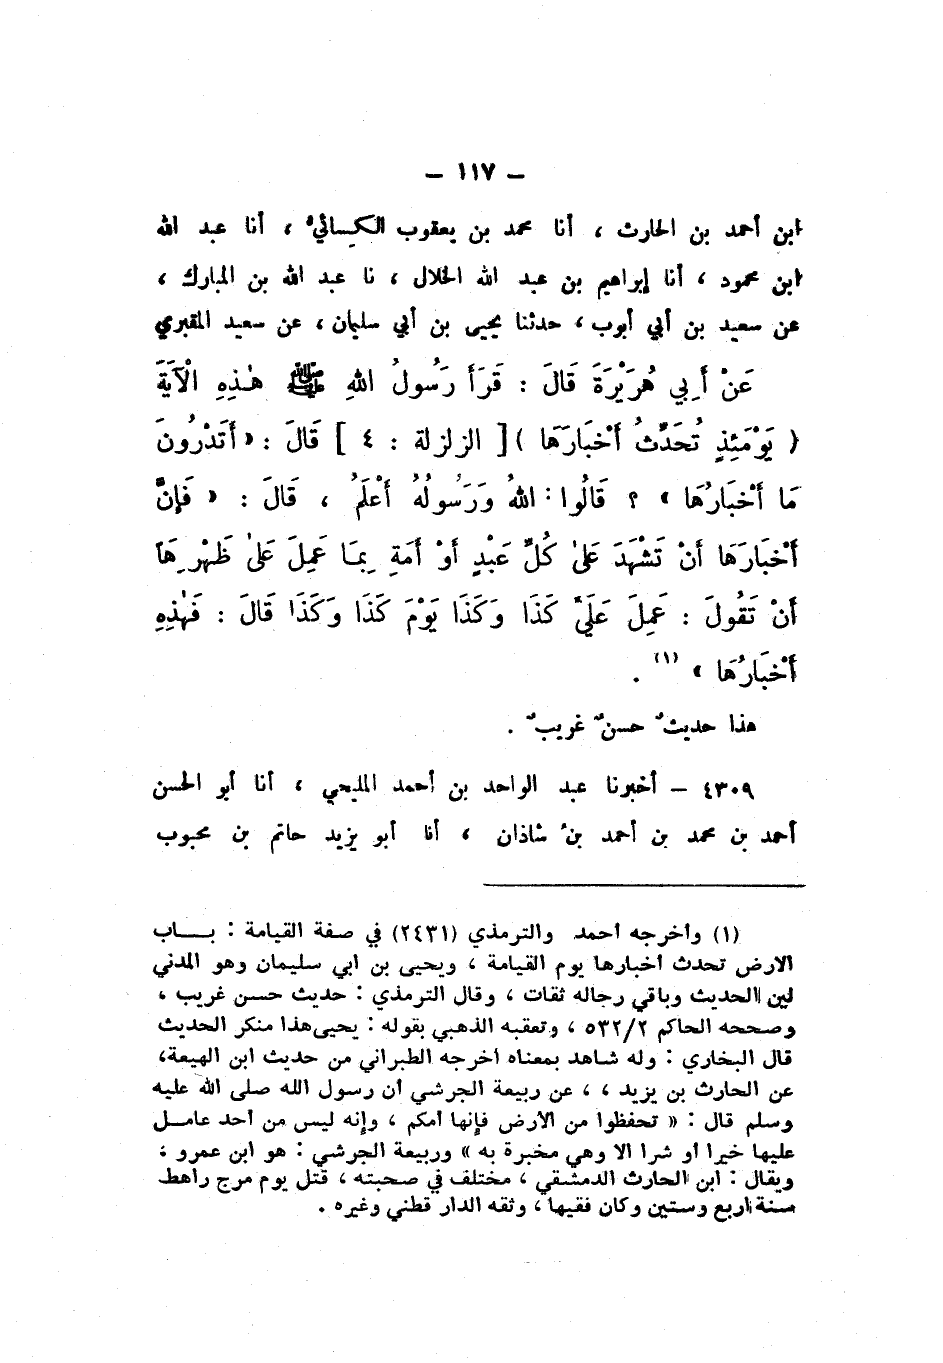 – ١١٧ –
ابن أحمد بن الحارث ، أنا محمد بن يعقوب الكسائيُّ ، أنا عبد الله
ابن محمود ، أنا إبراهيم بن عبد الله الخلال ، نا عبد الله بن المبارك ،
عن سعيد بن أبي أيوب ، حدثنا يحيى بن أبي سليمان ، عن سعيد المقبري
عَنْ أَبِي هُرَيْرَةَ قَالَ : قَرَأَ رَسُولُ اللهِ ﷺ هٰذِهِ الْآيَةَ
( يَوْمَئِذٍ تُحَدِّثُ أَخْبَارَهَا ) [ الزلزلة : ٤ ] قَالَ : « أَتَدْرُونَ
مَا أَخْبَارُهَا » ؟ قَالُوا : اللهُ وَرَسُولُهُ أَعْلَمُ ، قَالَ : « فَإِنَّ
أَخْبَارَهَا أَنْ تَشْهَدَ عَلىٰ كُلِّ عَبْدٍ أَوْ أَمَةٍ بِمَا عَمِلَ عَلىٰ ظَهْرِهَا
أَنْ تَقُولَ : عَمِلَ عَلَيَّ كَذَا وَكَذَا يَوْمَ كَذَا وَكَذَا قَالَ : فَهٰذِهِ
أَخْبَارُهَا » (١) .
هذا حديثٌ حسنٌ غريبٌ .
٤٣٠٩ – أخبرنا عبد الواحد بن أحمد المليحي ، أنا أبو الحسن
أحمد بن محمد بن أحمد بن شاذان ، أنا أبو يزيد حاتم بن محبوب
(١) وأخرجه أحمد والترمذي (٢٤٣١) في صفة القيامة : بـــاب
الارض تحدث أخبارها يوم القيامة ، ويحيى بن ابي سليمان وهو المدني
لين الحديث وباقي رجاله ثقات ، وقال الترمذي : حديث حسن غريب ،
وصححه الحاكم ٥٣٢/٢ ، وتعقبه الذهبي بقوله : يحيى هذا منكر الحديث
قال البخاري : وله شاهد بمعناه أخرجه الطبراني من حديث ابن الهيعة ،
عن الحارث بن يزيد ، ، عن ربيعة الجرشي أن رسول الله صلى الله عليه
وسلم قال : « تحفظوا من الارض فإنها أمكم ، وإنه ليس من أحد عامـــل
عليها خيرا أو شرا الا وهي مخبرة به » وربيعة الجرشي : هو ابن عمرو ؛
ويقال : ابن الحارث الدمشقي ، مختلف في صحبته ، قتل يوم مرج راهط
سنة اربع وستين وكان فقيها ، وثقه الدار قطني وغيره .